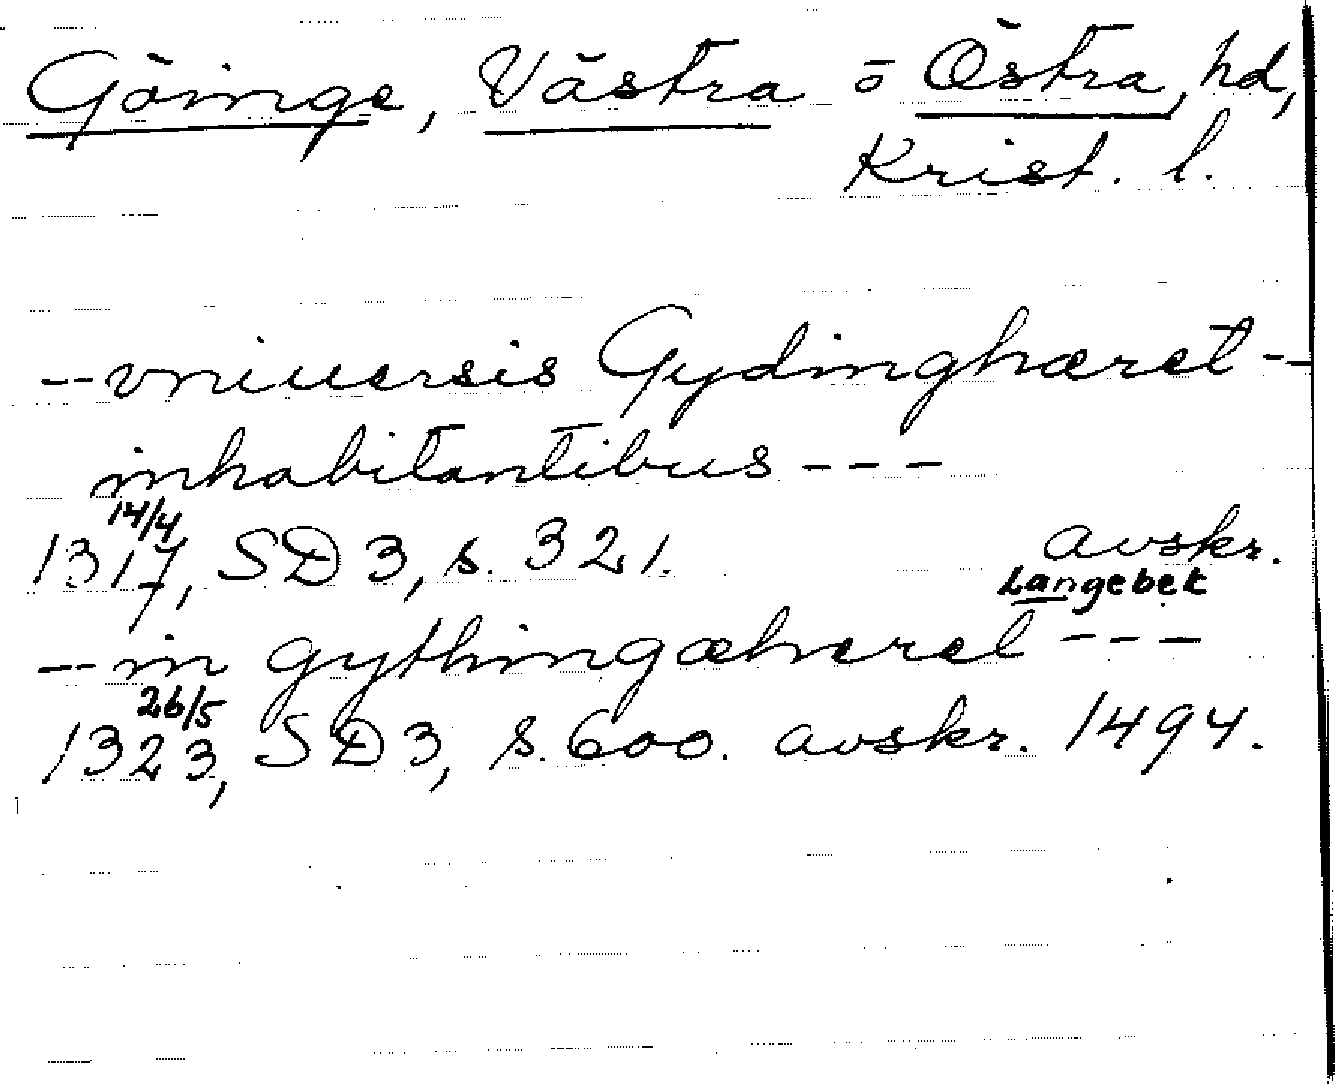 Göinge, Västra o Östra, hd,
Krist. l.
-- vniuersis Gydinghæret --
inhabitantibus ---
14/4
1317, SD 3, s. 321. avskr.
Langebek
-- in gythingæheret ---
26/5
1323, SD 3, s. 600. avskr. 1494.